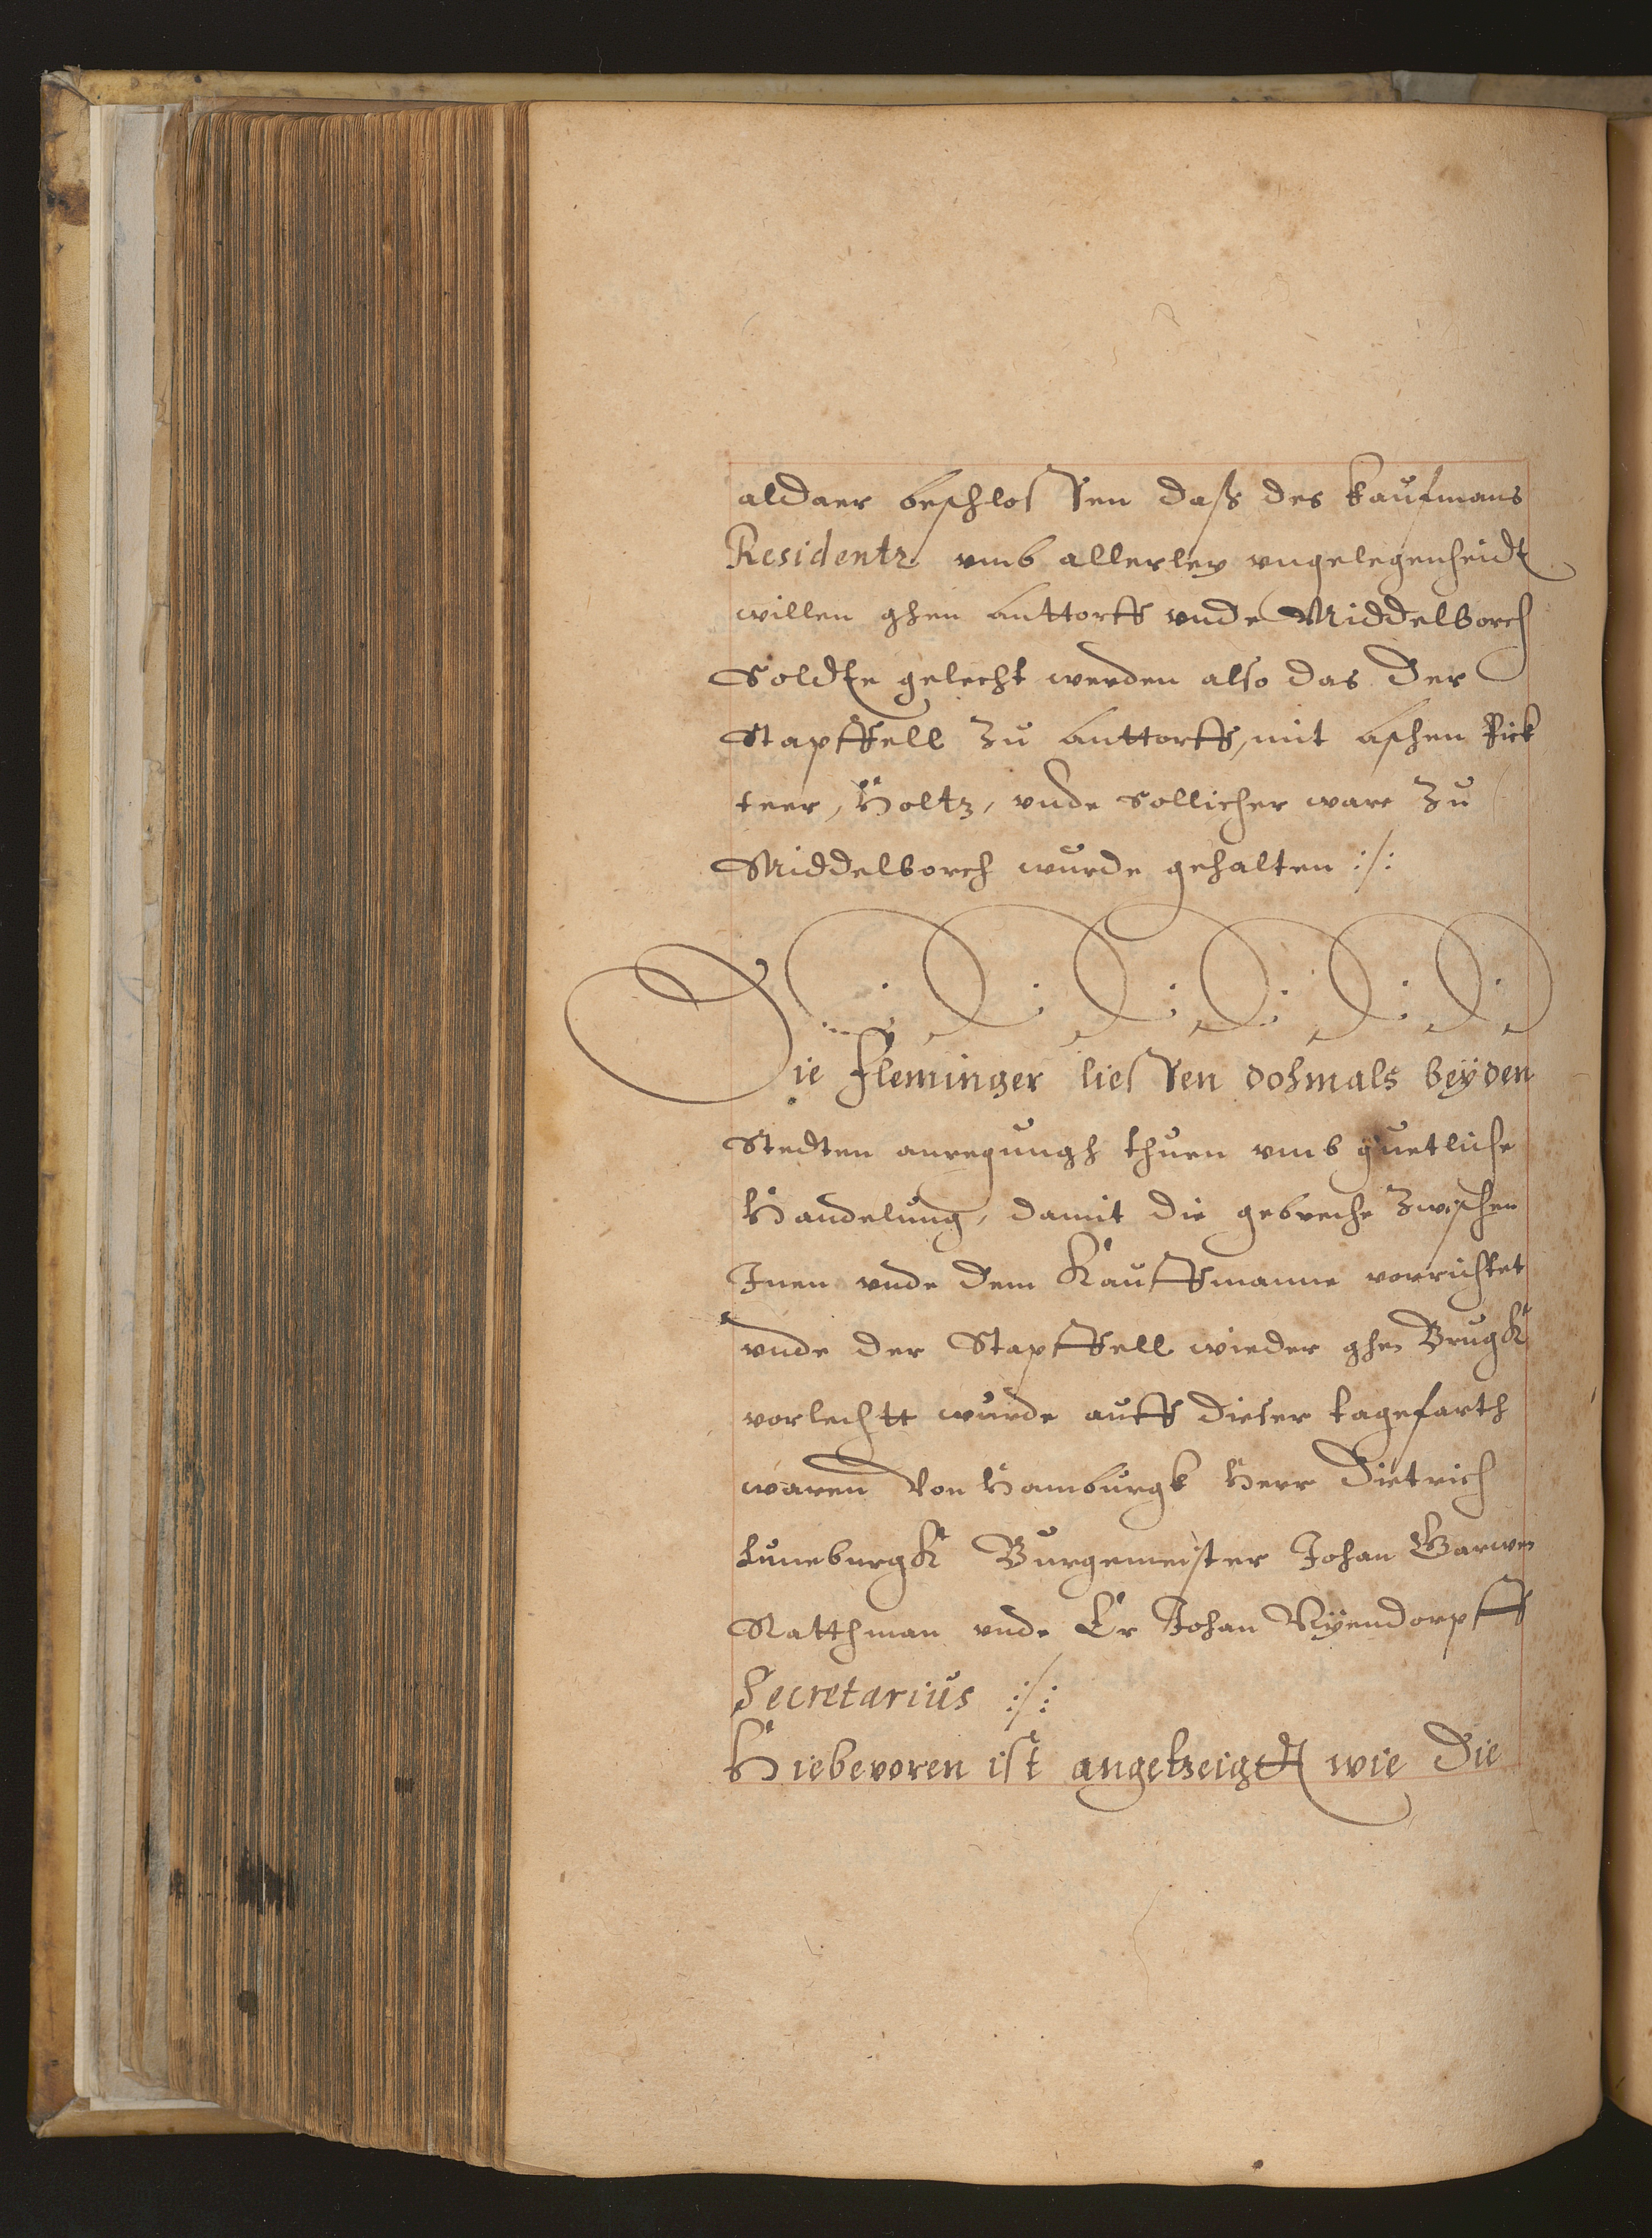 aldaer beschlossen daß des kaufmans
Residentz vmb allerley vngelegenheidt
willen ghen Anttorff vnde Middelborch
Soldte gelecht werden also das der
Stapffell zu Anttorff, mit Aschen Pick
teer, Holtz, vnde sollicher ware zu
Middelborch wurde gehalten :/:
Die Fleminger liessen dohmals beyden
Stedten anregungh thuen vmb guetliche
Handelung, damit die gebreche zwischen
Inen vnde dem Kauffmanne vorrichtet
vnde der Stapffell wieder ghen Brugk
vorlechtt wurde auff dieser tagefarth
waren von Hamburgk Herr Dietrich
Luneburgk Burgemeister Johan Garwen
Ratthman vnde Er Johan Nyendorpff
Secretarius :/:
Hiebevoren ist angetzeigdt wie die